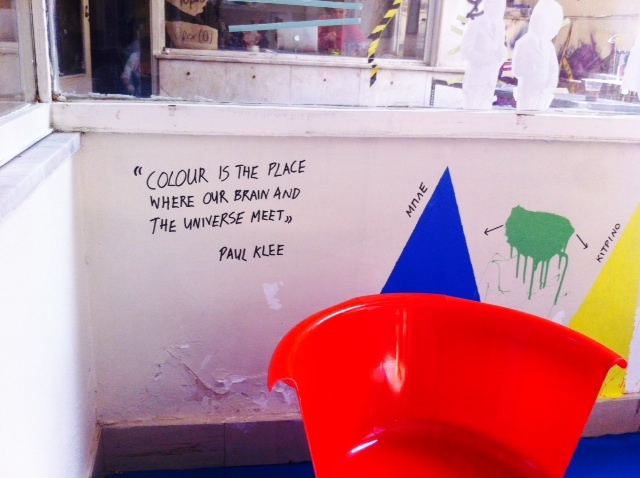 “COLOUR IS THE PLACE
WHERE OUR BRAIN AND
THE UNIVERSE MEET”
PAUL KLEE
ΜΠΛΕ
ΚΙΤΡΙΝΟ